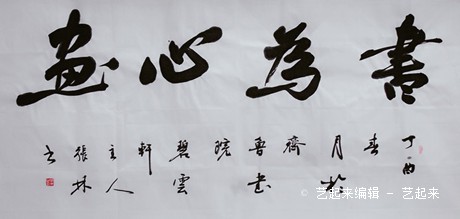 書為心畫
丁酉
春
月
齊
魯書
碧雲
軒
主人
張林
书
© 艺起来编辑 - 艺起来